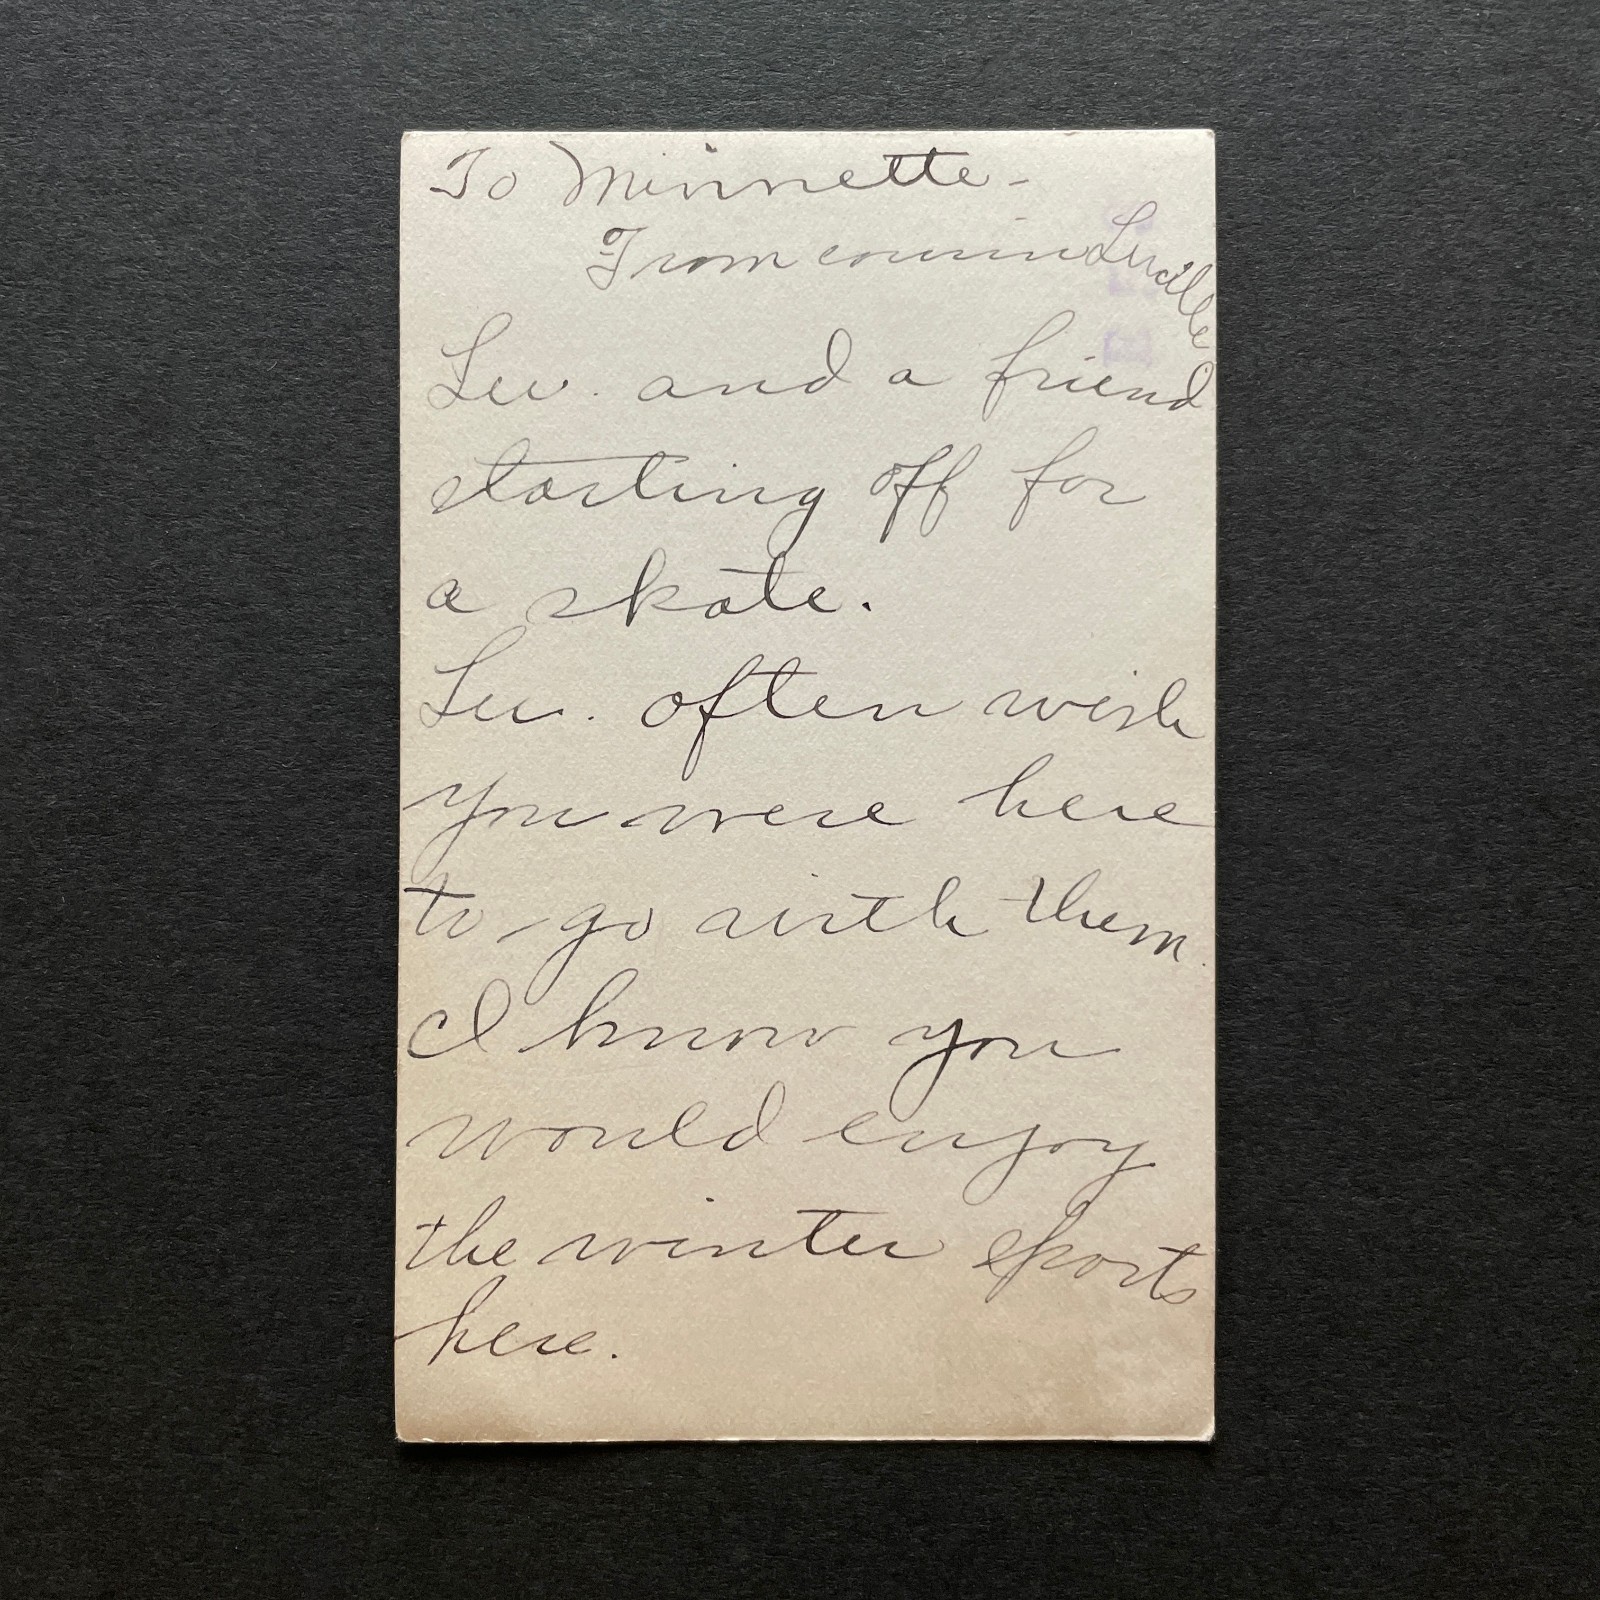 To Minnette -
From cousin Lucille
Lu. and a friend
starting off for
a skate.
Lu. often wish
you were here
to go with them.
I know you
would enjoy
the winter sports
here.